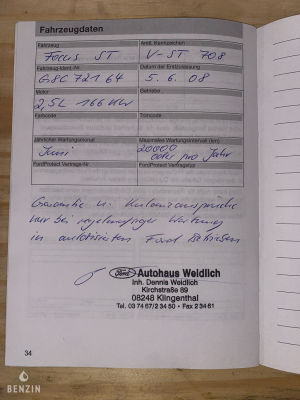 Fahrzeugdaten
Fahrzeug
Amtl. Kennzeichen
Focus ST
V-ST 708
Fahrzeug-Ident.-Nr.
Datum der Erstzulassung
G8C 721 64
5. 6. 08
Motor
Getriebe
2,5L 166 KW
Farbcode
Trimcode
Jährlicher Wartungsmonat
Maximales Wartungsintervall (km)
Juni
20000
oder pro Jahr
FordProtect Vertrags-Nr.
FordProtect Vertragstyp
Garantie u. Kulanzansprüche
nur bei regelmäßiger Wartung
in autorisierten Ford Betrieben
Ford Autohaus Weidlich
Inh. Dennis Weidlich
Kirchstraße 89
08248 Klingenthal
Tel. 03 74 67/2 34 50 • Fax 2 34 61
34
BENZIN